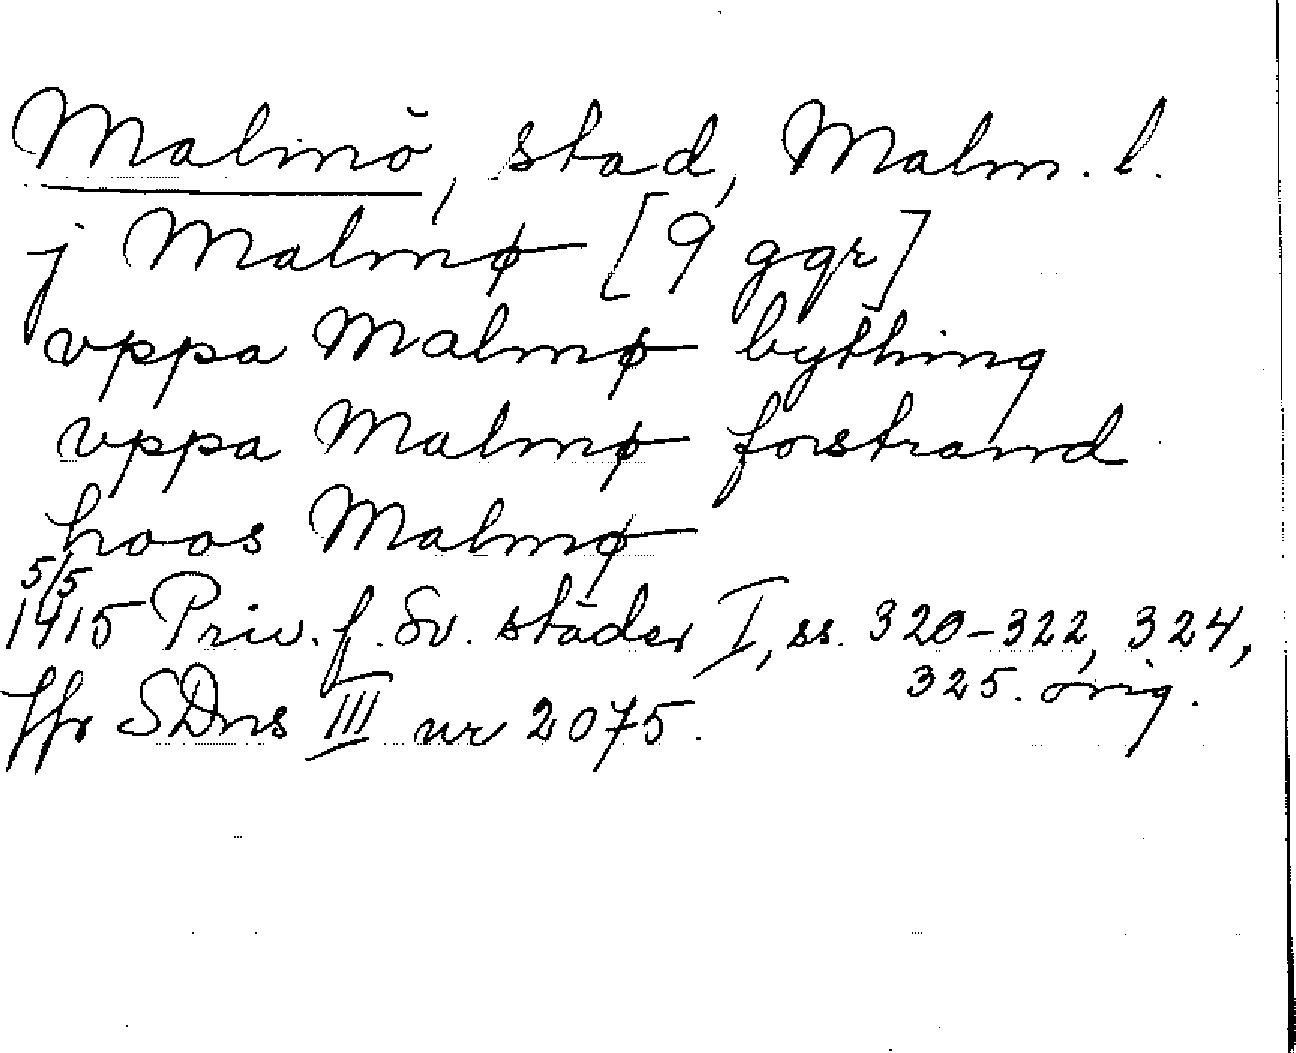 Malmö, stad, Malm. l.
j Malmø [9 ggr]
vppa Malmø bything
vppa Malmø forstrand
hoos Malmø
5/5
1415 Priv. f. Sv. städer I, ss. 320-322, 324,
325. orig.
Jfr SDns III nr 2075.